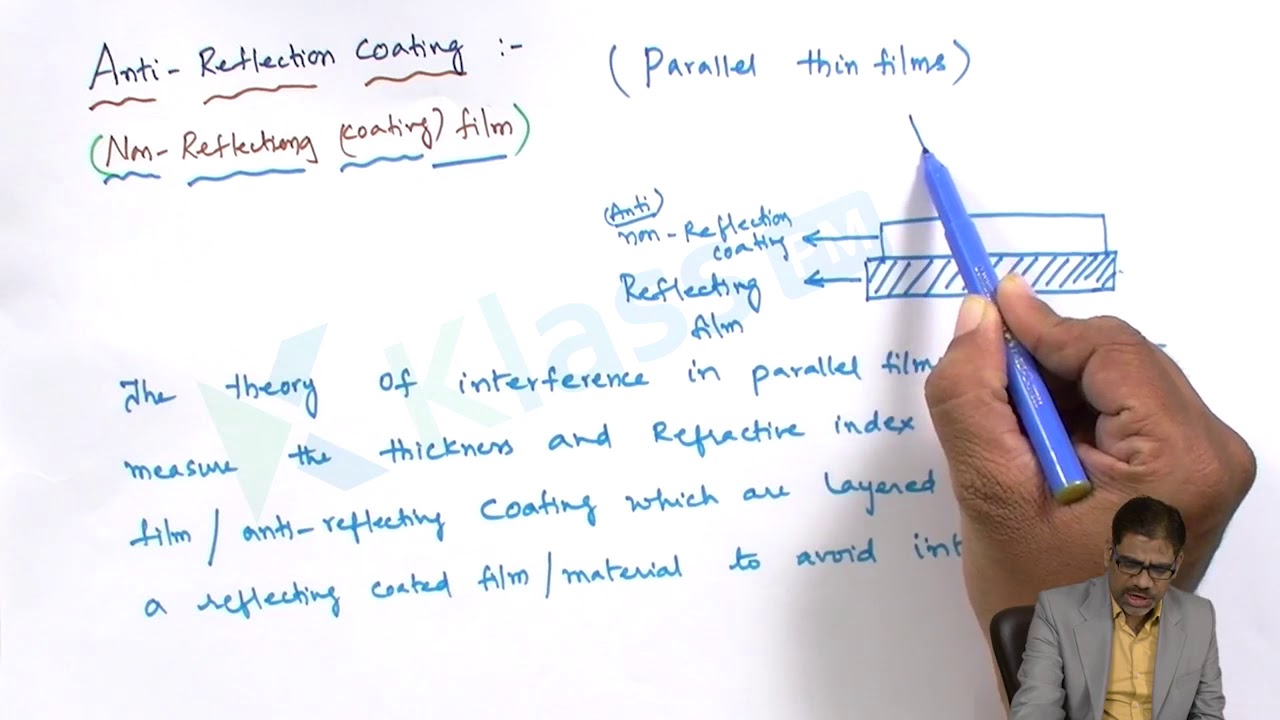 Anti-Reflection Coating :-
(Parallel thin films)
(Non-Reflectiong (coating) film)
(Anti)
non-Reflection
coating
Reflecting
film
The theory of interference in parallel film
measure the thickness and Refractive index
film / anti-reflecting Coating which are layered
a reflecting coated film/material to avoid int
Klass